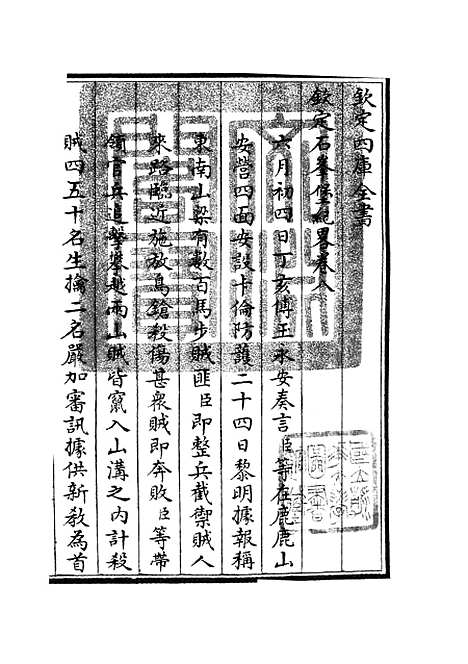 欽定四庫全書
欽定石峯堡紀畧卷八
六月初四日丁亥傅玉永安奏言臣等在鹿鹿山
安營四面安設卡倫防護二十四日黎明據報稱
東南山梁有數百馬步賊匪臣即整兵截禦賊人
來路臨近施放鳥鎗殺傷甚衆賊即奔敗臣等帶
領官兵追擊攀越兩山賊皆竄入山溝之内計殺
賊四五十名生擒二名嚴加審訊據供新教為首